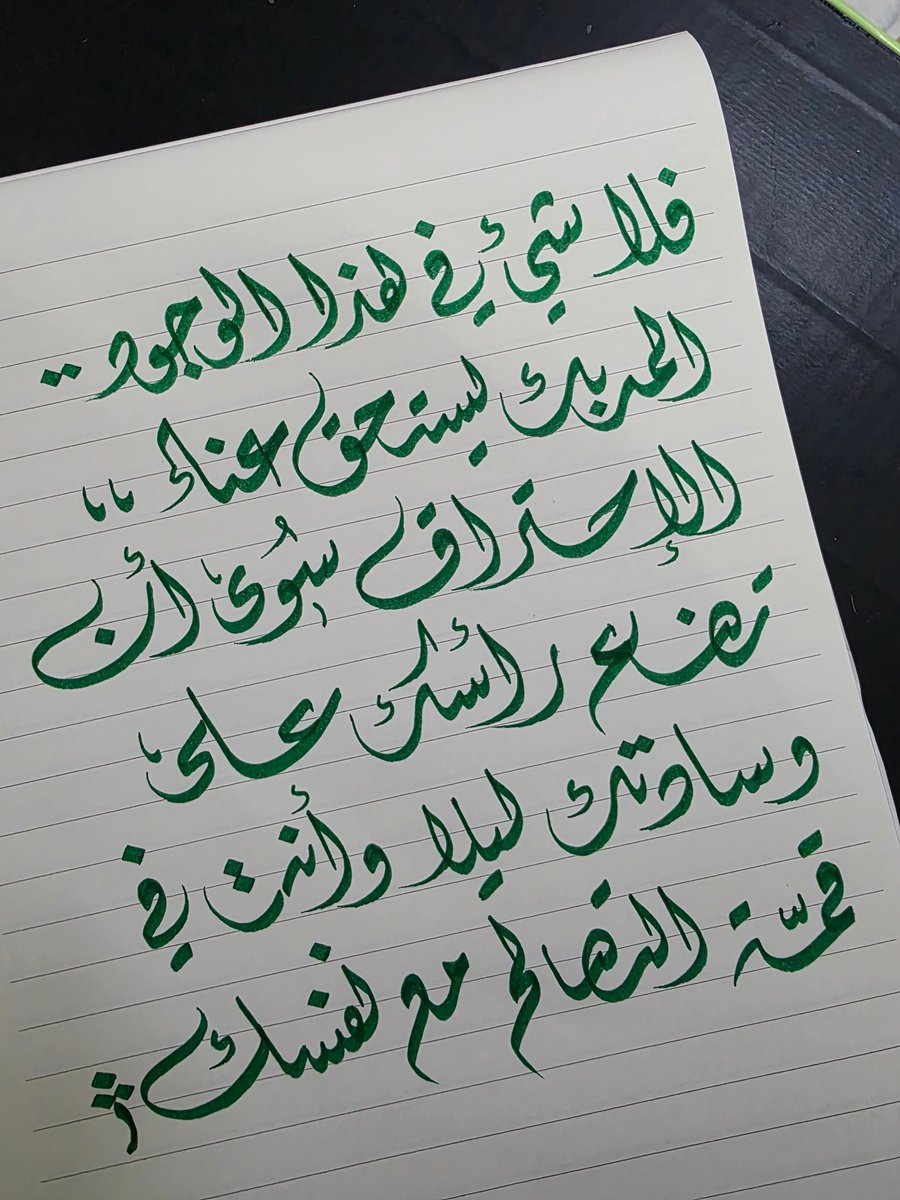 فلا شيئ في هذا الوجود ..
المربك يستحق عناء ،،
الإحتراق سُوى أن
تضع رأسك على
وسادتك ليلا وأنت في
قمّة التصالح مع نفسك